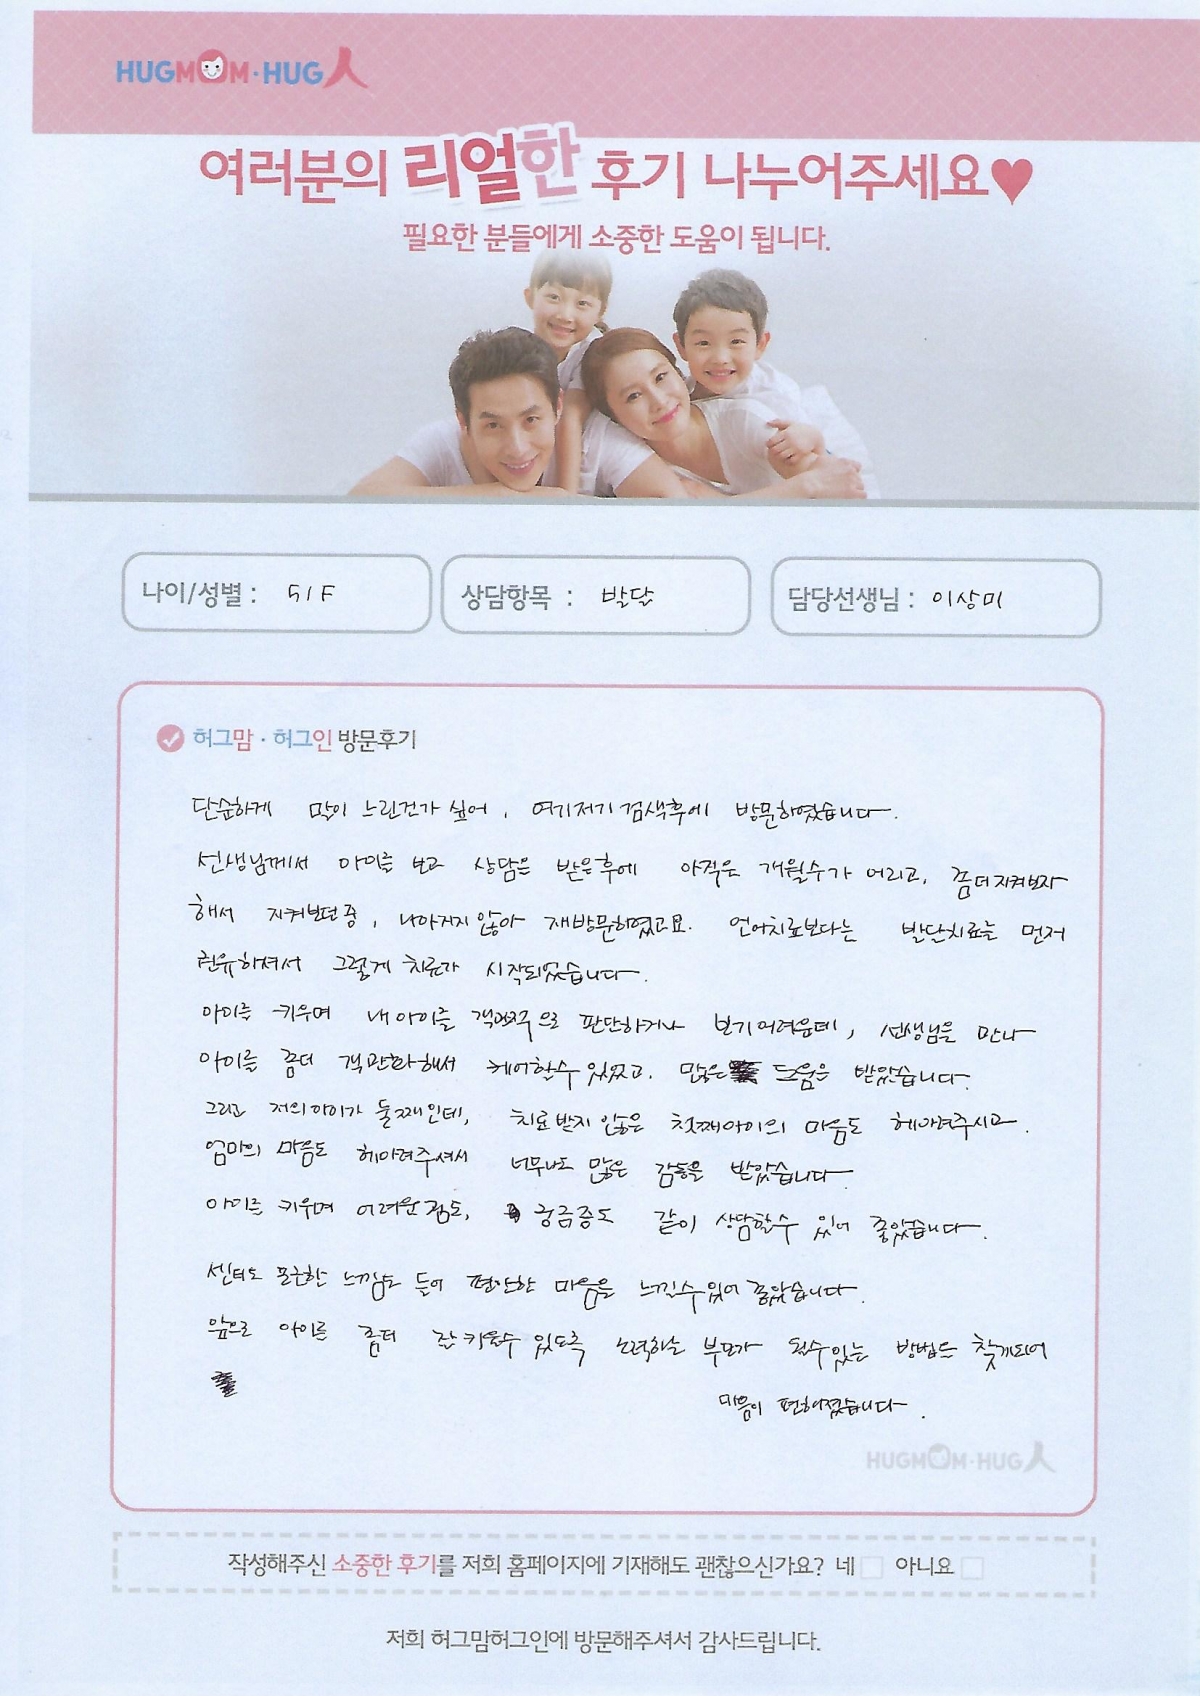 HUGMOM·HUG人
여러분의 리얼한 후기 나누어주세요♥
필요한 분들에게 소중한 도움이 됩니다.
나이/성별 : 5/F
상담항목 : 발달
담당선생님 : 이상미
허그맘·허그인 방문후기
단순하게 많이 느린건가 싶어, 여기저기 검색후에 방문하였습니다.
선생님께서 아이를 보고 상담을 받은후에 아직은 개월수가 어리고, 좀더지켜보자
해서 지켜보던중, 나아지지않아 재방문하였고요. 언어치료보다는 발달치료를 먼저
권유하셔서 그렇게 치료가 시작되었습니다.
아이를 키우며 내아이를 객관적으로 판단하거나 보기어려운데, 선생님을 만나
아이를 좀더 객관화해서 케어할수있었고. 많은 도움을 받았습니다.
그리고 저의아이가 둘째인데, 치료받지않는 첫째아이의 마음도 헤아려주시고.
엄마의 마음도 헤아려주셔서 너무나도 많은 감동을 받았습니다.
아이를 키우며 어려운점도, 궁금증도 같이 상담할수 있어 좋았습니다.
센터도 포근한 느낌도 들어 편안한 마음을 느낄수있어 좋았습니다.
앞으로 아이를 좀더 잘키울수 있도록 노력하는 부모가 될수있는 방법을 찾게되어
마음이 편해졌습니다.
HUGMOM·HUG人
작성해주신 소중한 후기를 저희 홈페이지에 기재해도 괜찮으신가요? 네 아니요
저희 허그맘허그인에 방문해주셔서 감사드립니다.